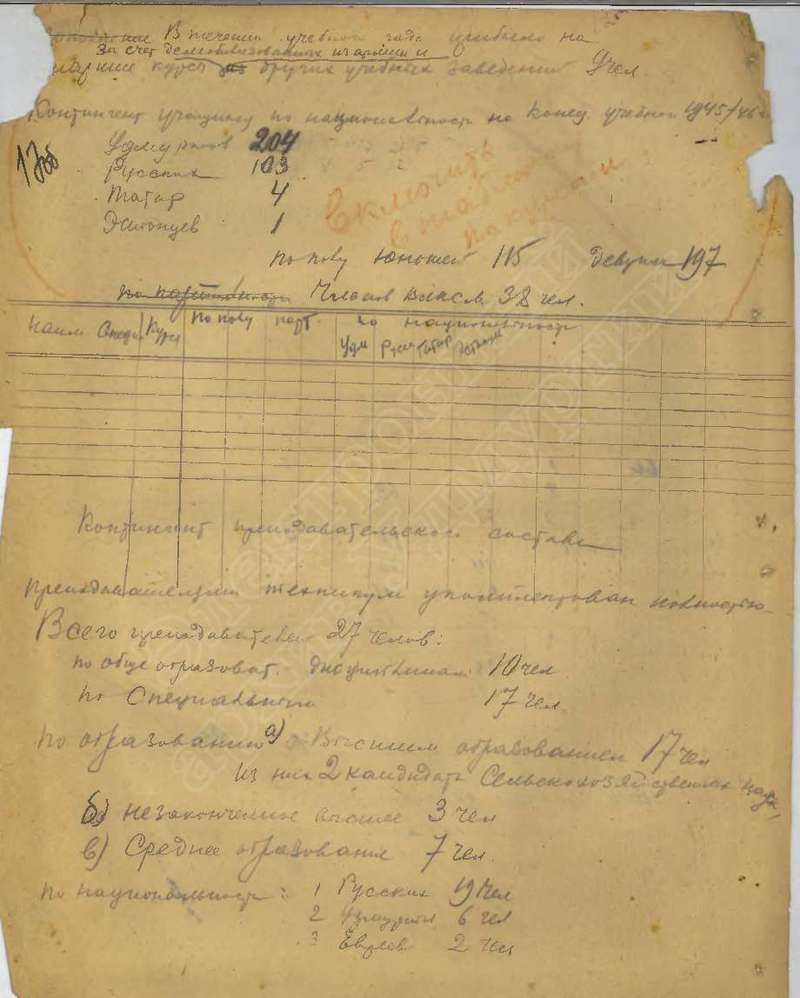 В течении учебного года прибыло на
За счет демобилизованных из армии и
старшие курсы из других учебных заведений 9 чел.
Контингент учащихся по национальность на конец учебного 1945/46
Удмуртов 204
Русских 103
Татар 4
Эстонцев 1
Включить
в таблицу
по курсам
по полу юношей 115 девушек 197
по партийности Членов ВЛКСМ 38 чел.
Наим Специ Курс по полу парт. по национальность
Удм Русск Татар Эстонцев
Контингент преподавательского состава
Преподавателями техникум укомплектован полностью
Всего преподавателей 27 челов:
по общеобразоват. дисциплинам 10 чел
по специальным 17 чел
по образованию а) с Высшим образованием 17 чел
Из них 2 кандидата Сельскохозяйственных наук,
б) незаконченное высшее 3 чел
в) Среднее образование 7 чел.
по национальность: 1 Русских 19 чел
2 Удмуртов 6 чел
3 Евреев 2 чел